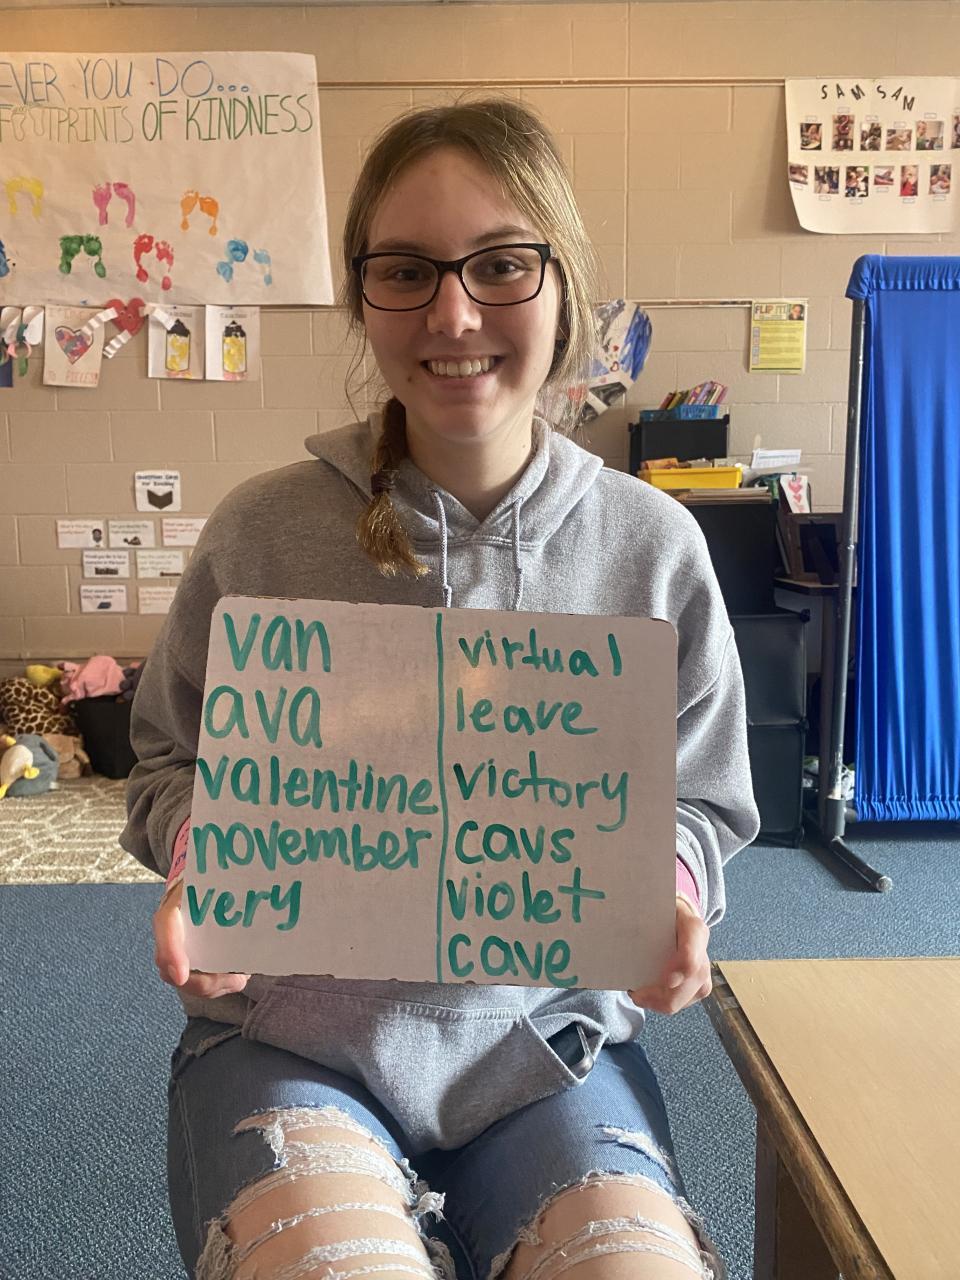 EVER YOU DO...
FOOTPRINTS OF KINDNESS
SAM SAM
FLIP IT!
TO PIECES!
van
ava
valentine
november
very
virtual
leave
victory
cavs
violet
cave